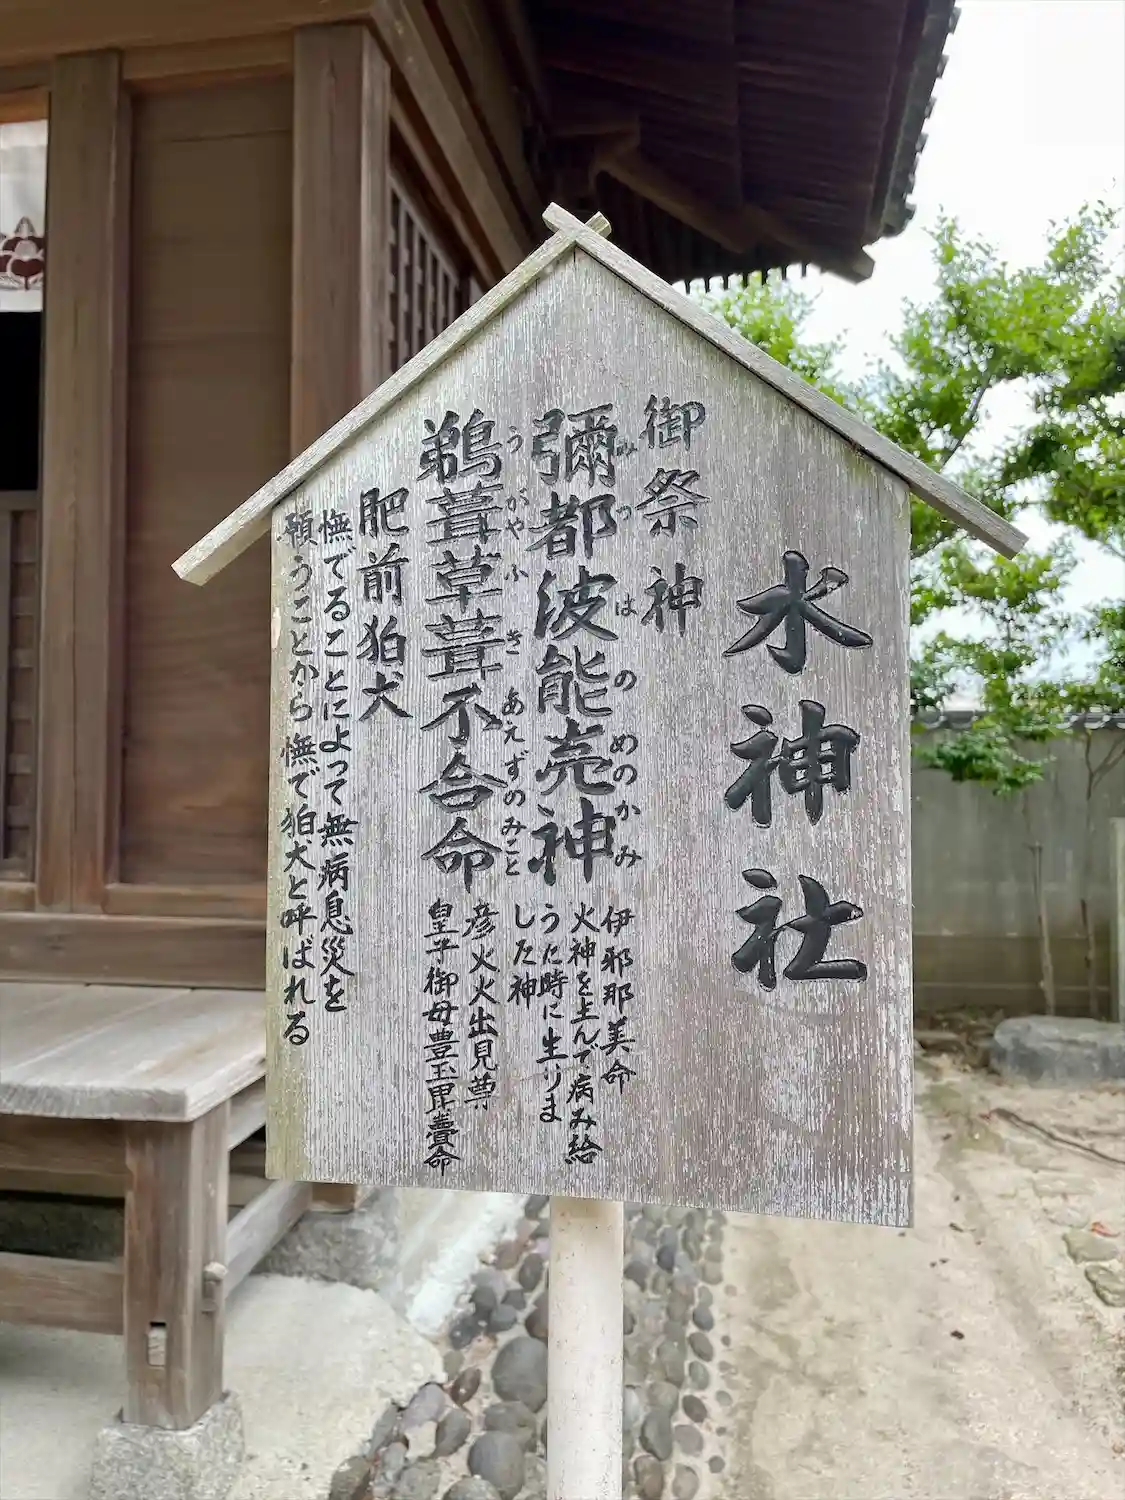 水神社
御祭神
彌都波能売神
みつはのめのかみ
伊邪那美命
火神を生んで病み給
うた時に生りま
した神
鵜葺草葺不合命
うがやふきあえずのみこと
彦火火出見尊
皇子御母豊玉毘賣命
肥前狛犬
憮でることによって無病息災を
願うことから憮で狛犬と呼ばれる